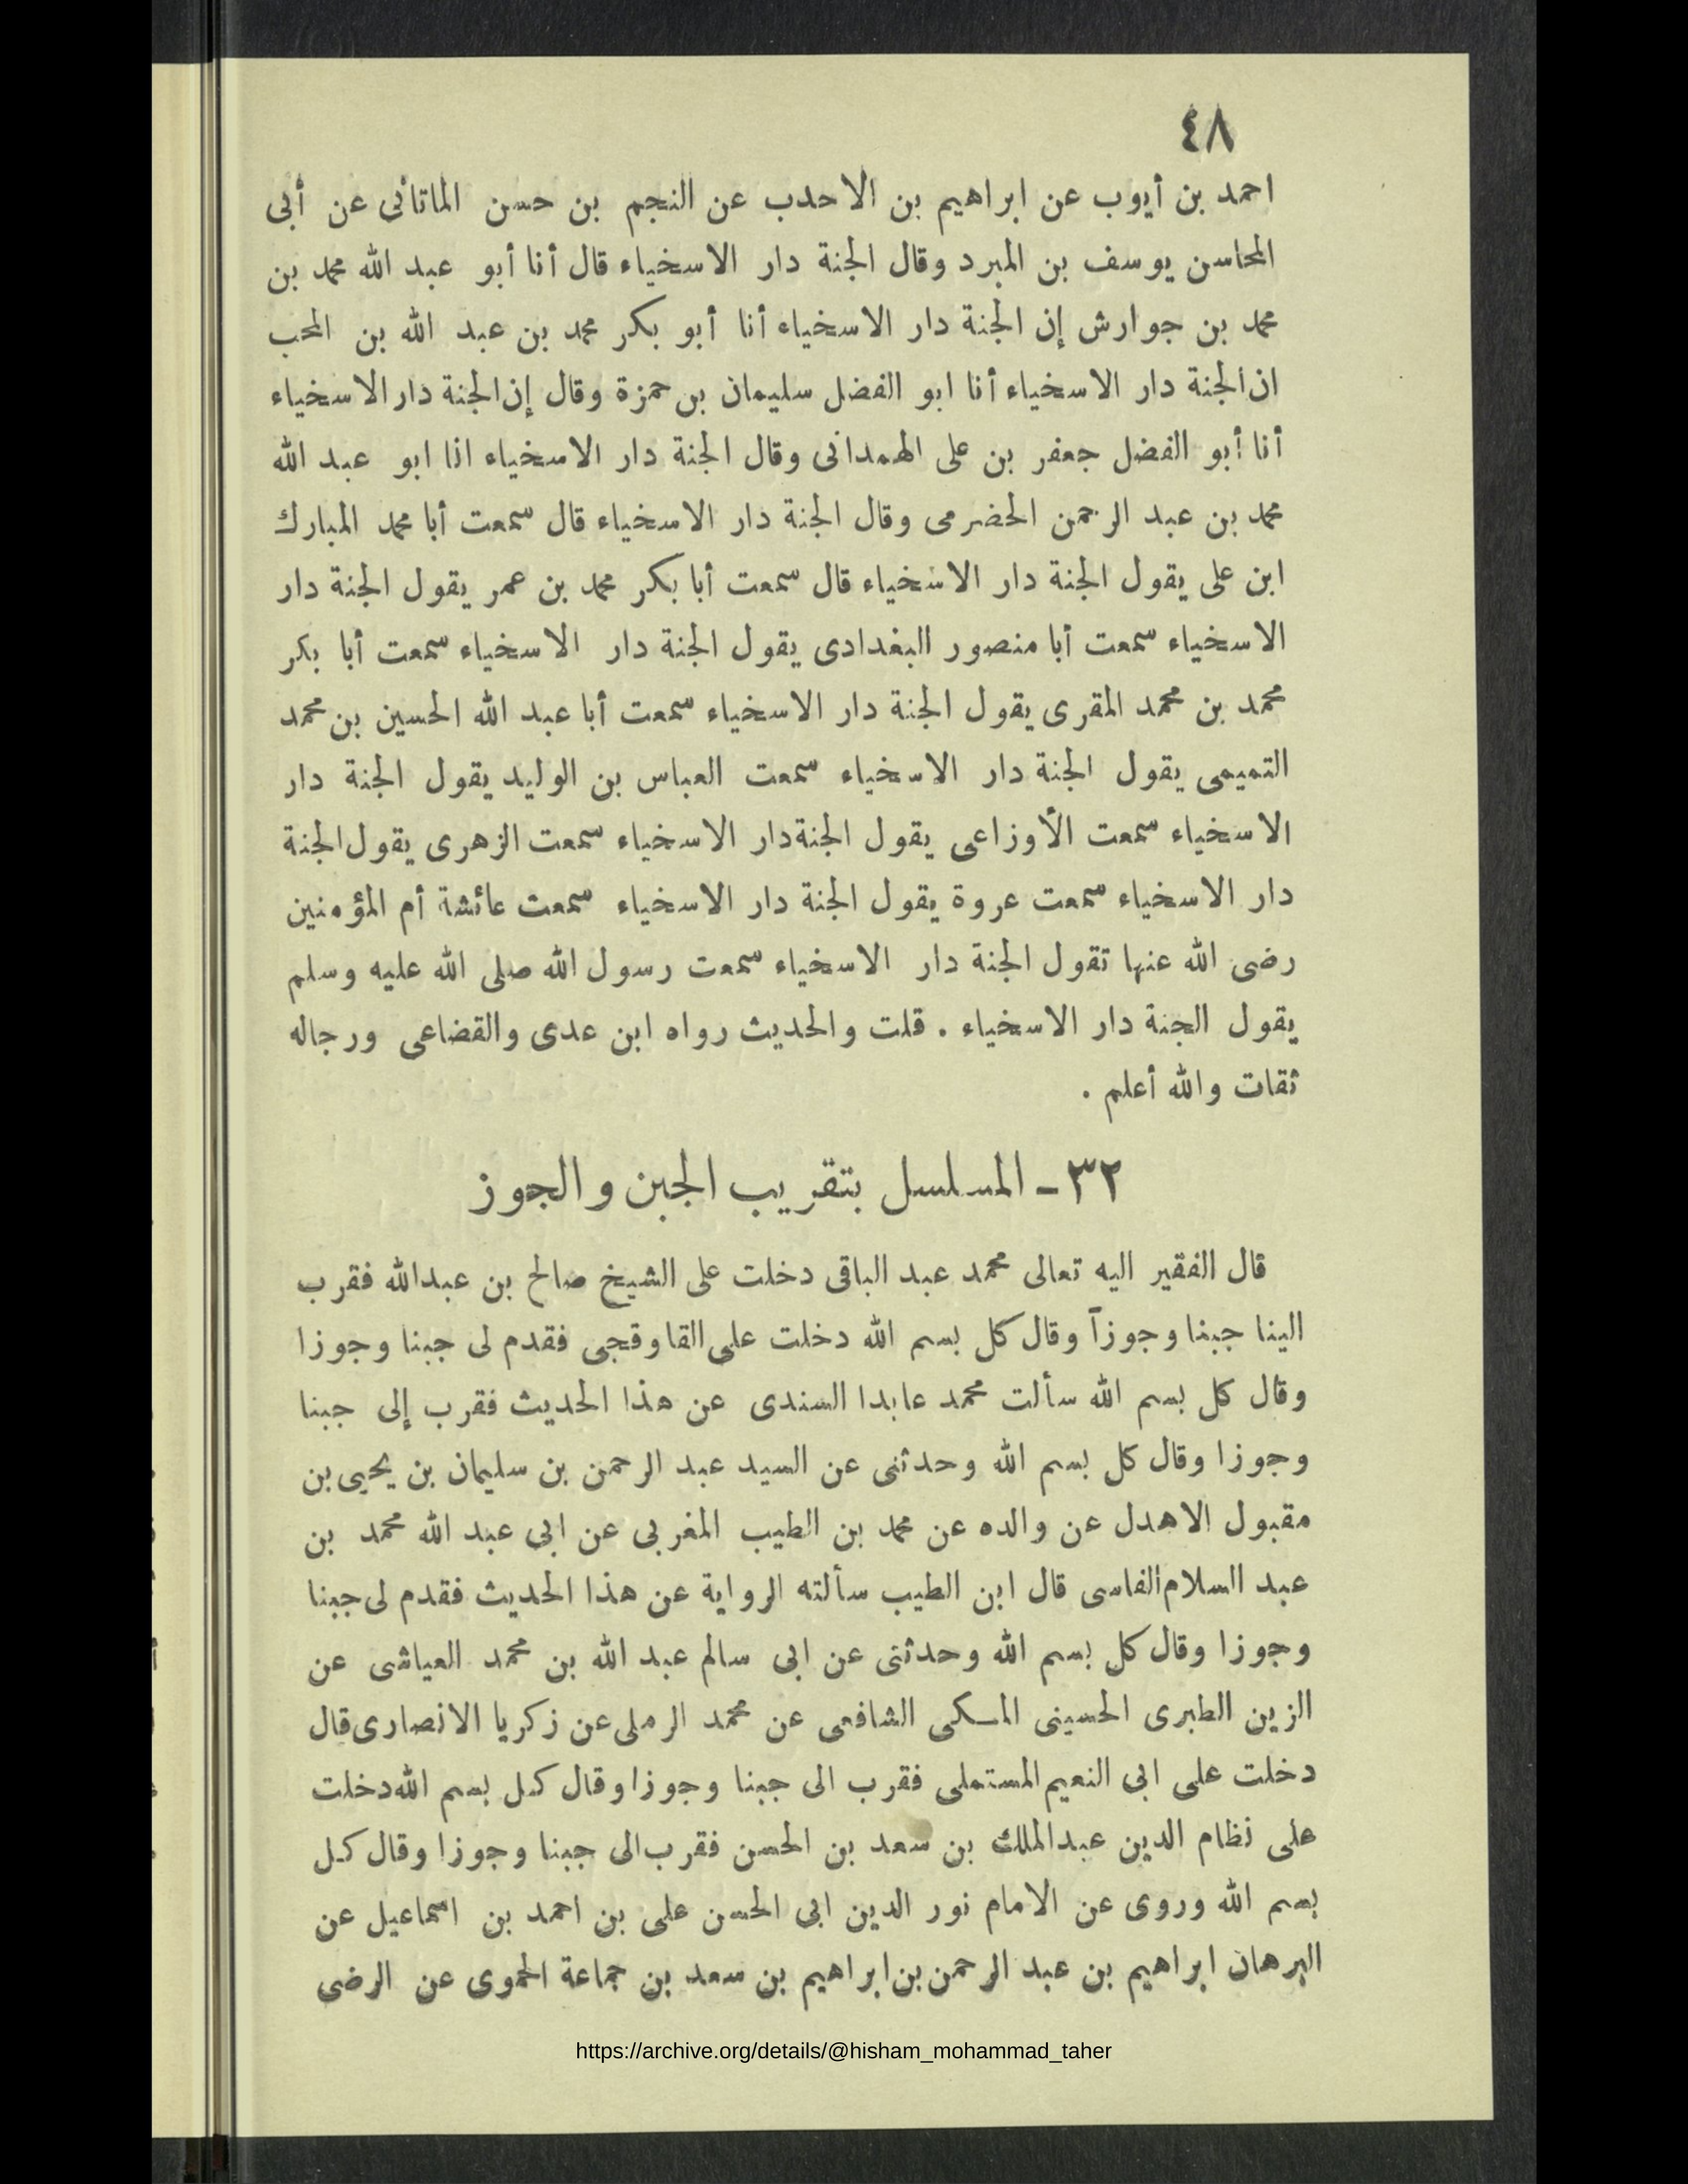 ٤٨
احمد بن أيوب عن ابراهيم بن الاحدب عن النجم بن حسن الماتانى عن أبى
المحاسن يوسف بن المبرد وقال الجنة دار الاسخياء قال أنا أبو عبد الله محمد بن
محمد بن جوارش إن الجنة دار الاسخياء أنا أبو بكر محمد بن عبد الله بن المحب
ان الجنة دار الاسخياء أنا ابو الفضل سليمان بن حمزة وقال إن الجنة دار الاسخياء
أنا أبو الفضل جعفر بن على الهمدانى وقال الجنة دار الاسخياء انا ابو عبد الله
محمد بن عبد الرحمن الحضرمى وقال الجنة دار الاسخياء قال سمعت أبا محمد المبارك
ابن على يقول الجنة دار الاسخياء قال سمعت أبا بكر محمد بن عمر يقول الجنة دار
الاسخياء سمعت أبا منصور البغدادى يقول الجنة دار الاسخياء سمعت أبا بكر
محمد بن محمد المقرى يقول الجنة دار الاسخياء سمعت أبا عبد الله الحسين بن محمد
التميمى يقول الجنة دار الاسخياء سمعت العباس بن الوليد يقول الجنة دار
الاسخياء سمعت الأوزاعى يقول الجنة دار الاسخياء سمعت الزهرى يقول الجنة
دار الاسخياء سمعت عروة يقول الجنة دار الاسخياء سمعت عائشة أم المؤمنين
رضى الله عنها تقول الجنة دار الاسخياء سمعت رسول الله صلى الله عليه وسلم
يقول الجنة دار الاسخياء . قلت والحديث رواه ابن عدى والقضاعى ورجاله
ثقات والله أعلم .
٣٢ - المسلسل بتقريب الجبن والجوز
قال الفقير اليه تعالى محمد عبد الباقى دخلت على الشيخ صالح بن عبدالله فقرب
الينا جبنا وجوزاً وقال كل بسم الله دخلت على القاوقجى فقدم لى جبنا وجوزا
وقال كل بسم الله سألت محمد عابدا السندى عن هذا الحديث فقرب إلى جبنا
وجوزا وقال كل بسم الله وحدثنى عن السيد عبد الرحمن بن سليمان بن يحيى بن
مقبول الاهدل عن والده عن محمد بن الطيب المغربى عن ابى عبد الله محمد بن
عبد السلام الفاسى قال ابن الطيب سألته الرواية عن هذا الحديث فقدم لى جبنا
وجوزا وقال كل بسم الله وحدثنى عن ابى سالم عبد الله بن محمد العياشى عن
الزين الطبرى الحسينى المكى الشافعى عن محمد الرملى عن زكريا الانصارى قال
دخلت على ابى النعيم المستملى فقرب الى جبنا وجوزا وقال كل بسم الله دخلت
على نظام الدين عبدالملك بن سعد بن الحسن فقرب الى جبنا وجوزا وقال كل
بسم الله وروى عن الامام نور الدين ابى الحسن على بن احمد بن اسماعيل عن
البرهان ابراهيم بن عبد الرحمن بن ابراهيم بن سعد بن جماعة الحموى عن الرضى
https://archive.org/details/@hisham_mohammad_taher